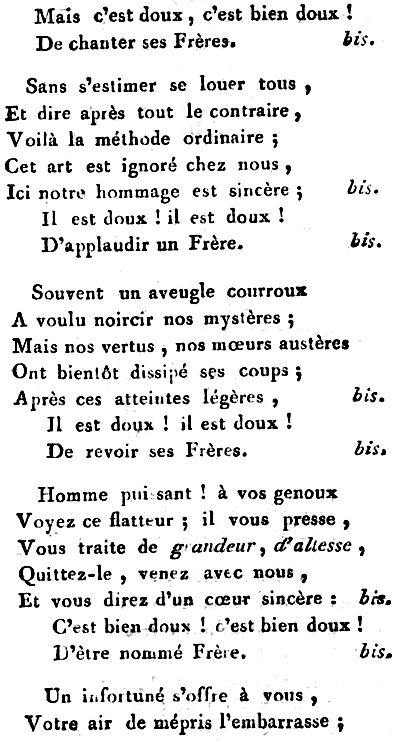 Mais c'est doux, c'est bien doux !
De chanter ses Frères. bis.
Sans s'estimer se louer tous ,
Et dire après tout le contraire,
Voilà la méthode ordinaire ;
Cet art est ignoré chez nous ,
Ici notre hommage est sincère ; bis.
Il est doux ! il est doux !
D'applaudir un Frère. bis.
Souvent un aveugle courroux
A voulu noircir nos mystères ;
Mais nos vertus , nos mœurs austères
Ont bientôt dissipé ses coups ;
Après ces atteintes légères , bis.
Il est doux ! il est doux !
De revoir ses Frères. bis.
Homme puissant ! à vos genoux
Voyez ce flatteur ; il vous presse ,
Vous traite de grandeur, d'altesse ,
Quittez-le , venez avec nous ,
Et vous direz d'un cœur sincère : bis.
C'est bien doux ! c'est bien doux !
D'être nommé Frère. bis.
Un infortuné s'offre à vous ,
Votre air de mépris l'embarrasse ;